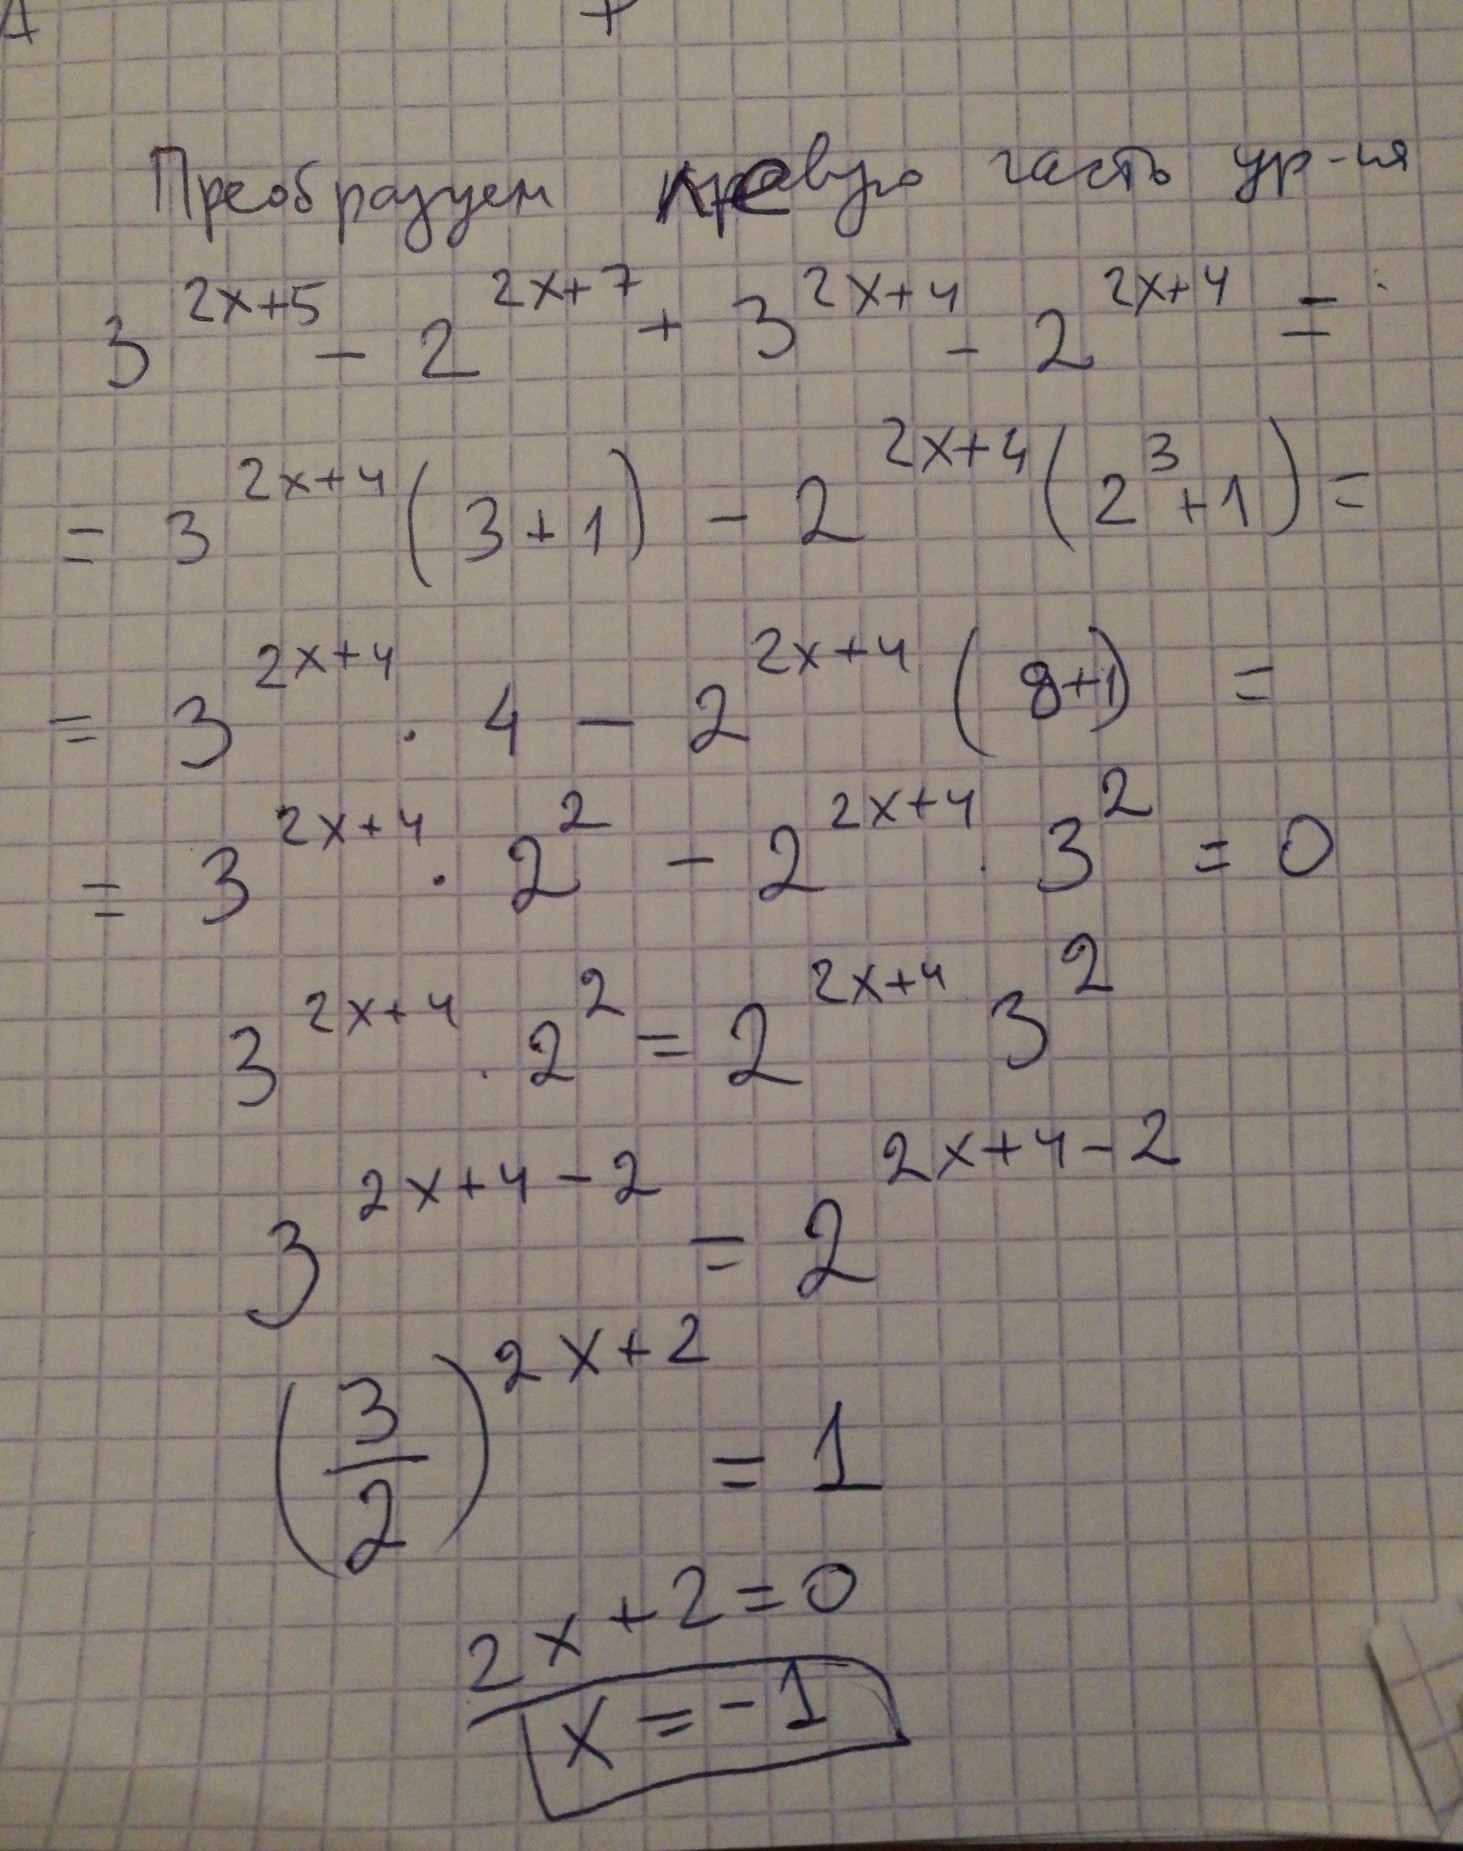 Преобразуем левую часть ур-ия
3^{2x+5} - 2^{2x+7} + 3^{2x+4} - 2^{2x+4} =
= 3^{2x+4} (3+1) - 2^{2x+4} (2^3+1) =
= 3^{2x+4} · 4 - 2^{2x+4} (8+1) =
= 3^{2x+4} · 2^2 - 2^{2x+4} · 3^2 = 0
3^{2x+4} · 2^2 = 2^{2x+4} 3^2
3^{2x+4-2} = 2^{2x+4-2}
(3/2)^{2x+2} = 1
2x+2=0
x=-1